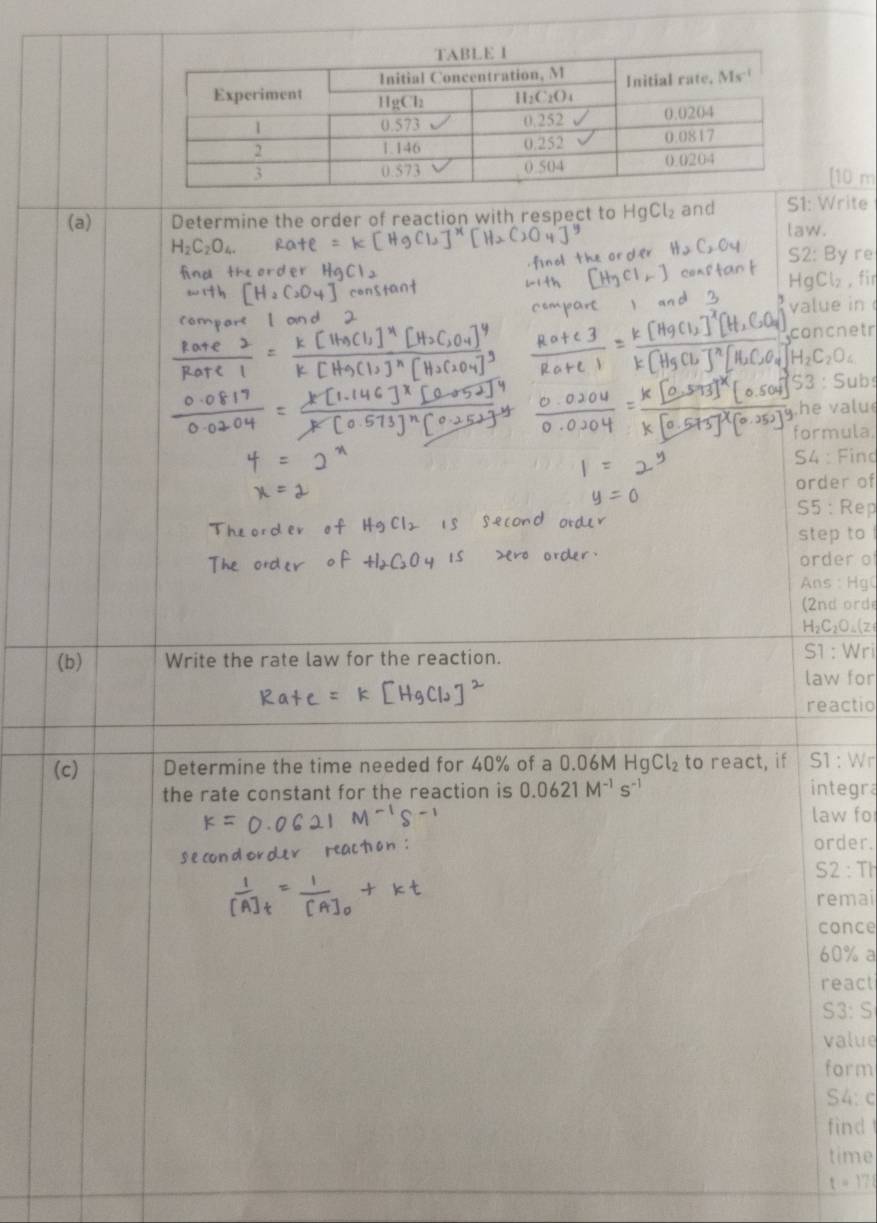 TABLE 1
Experiment Initial Concentration, M Initial rate, Ms⁻¹
HgCl₂ H₂C₂O₄
1 0.573 ✓ 0.252 ✓ 0.0204
2 1.146 0.252 ✓ 0.0817
3 0.573 ✓ 0.504 0.0204
[10 m
(a) Determine the order of reaction with respect to HgCl₂ and
H₂C₂O₄. Rate = k [HgCl₂]ˣ [H₂C₂O₄]ʸ
find the order HgCl₂
with [H₂C₂O₄] constant
compare 1 and 2
Rate 2 / Rate 1 = k [HgCl₂]ˣ [H₂C₂O₄]ʸ / k [HgCl₂]ˣ [H₂C₂O₄]ʸ
0.0817 / 0.0204 = k [1.146]ˣ [0.252]ʸ / k [0.573]ˣ [0.252]ʸ
4 = 2ˣ
x = 2
find the order H₂C₂O₄
with [HgCl₂] constant
compare 1 and 3
Rate 3 / Rate 1 = k [HgCl₂]ˣ [H₂C₂O₄]ʸ / k [HgCl₂]ˣ [H₂C₂O₄]ʸ
0.0204 / 0.0204 = k [0.573]ˣ [0.504]ʸ / k [0.573]ˣ [0.252]ʸ
1 = 2ʸ
y = 0
The order of HgCl₂ is second order
The order of H₂C₂O₄ is zero order.
S1: Write
law.
S2: By re
HgCl₂, fi
value in
concnetr
H₂C₂O₄
S3 : Subs
he value
formula.
S4 : Find
order of
S5 : Rep
step to
order of
Ans : Hg
(2nd orde
H₂C₂O₄(ze
(b) Write the rate law for the reaction.
Rate = k [HgCl₂]²
S1 : Wri
law for
reactio
(c) Determine the time needed for 40% of a 0.06M HgCl₂ to react, if
the rate constant for the reaction is 0.0621 M⁻¹ s⁻¹
k = 0.0621 M⁻¹S⁻¹
second order reaction:
1/[A]t = 1/[A]₀ + kt
S1 : Wr
integra
law for
order.
S2 : Th
remai
conce
60% a
reacti
S3: S
value
form
S4: c
find
time
t = 178